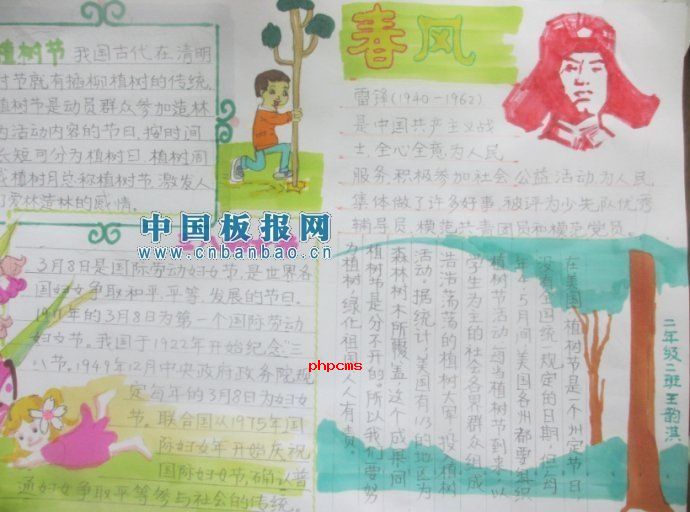 植树节 我国古代在清明
时节就有插柳植树的传统.
植树节是动员群众参加造林
为活动内容的节日.按时间
长短可分为植树日、植树周
或植树月总称植树节.激发人
们爱林造林的感情.
春风
雷锋(1940-1962)
是中国共产主义战
士.全心全意为人民
服务.积极参加社会公益活动.为人民
集体做了许多好事.被评为少先队优秀
辅导员.模范共青团员和模范党员.
中国板报网
www.cnbanbao.cn
3月8日是国际劳动妇女节.是世界各
国妇女争取和平.平等.发展的节日.
的3月8日为第一个国际劳动
妇女节.我国于1922年开始纪念"三
八"节.1949年12月中央政府政务院规
定每年的3月8日为妇女
节.联合国从1975年国
际妇女年开始庆祝
国际妇女节,确认普
通妇女争取平等参与社会的传统.
phpcms
在美国,植树节是一个州定节日
没有全国统一规定的日期.但每
年4.5月间,美国各州都要组织
植树节活动.每当植树节到来,以
学生为主的社会各界群众组成
浩浩荡荡的植树大军,投入植树
活动.据统计,美国有1/3的地区为
森林树木所覆盖.这个成果同
植树节是分不开的.所以我们要努
力植树.绿化祖国.人人有责.
二年级二班王韵淇